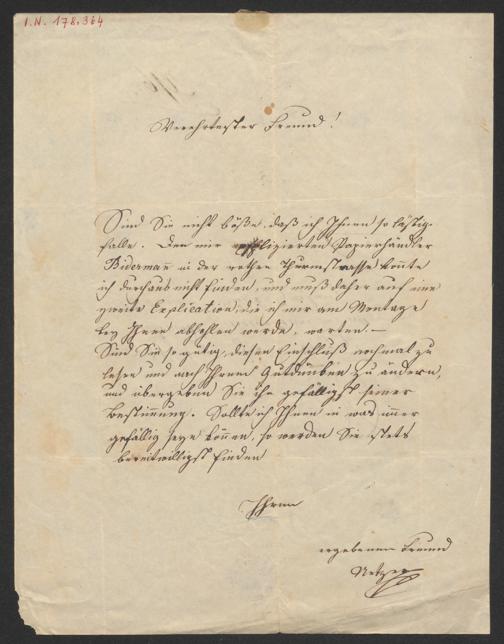 I.N. 178.364
Verehrtester Freund!
Sind Sie nicht böße, daß ich Ihnen so lästig
falle. Den mir explizierten Papierhändler
Bidermann in der rothen Thurmstrasse konnte
ich durchaus nicht finden, und muß daher auf eine
zweite Explication, die ich mir am Montage
bey Ihnen abholen werde, warten. —
Sind Sie so gütig, diesen Einschluß nochmal zu
lesen und nach Ihrem Gutdünken zu ändern,
und übergeben Sie ihn gefälligst seiner
Bestimmung. Sollte ich Ihnen in was immer
gefällig seyn können, so werden Sie stets
bereitwilligst finden
Ihren
ergebenen Freund
Netzer